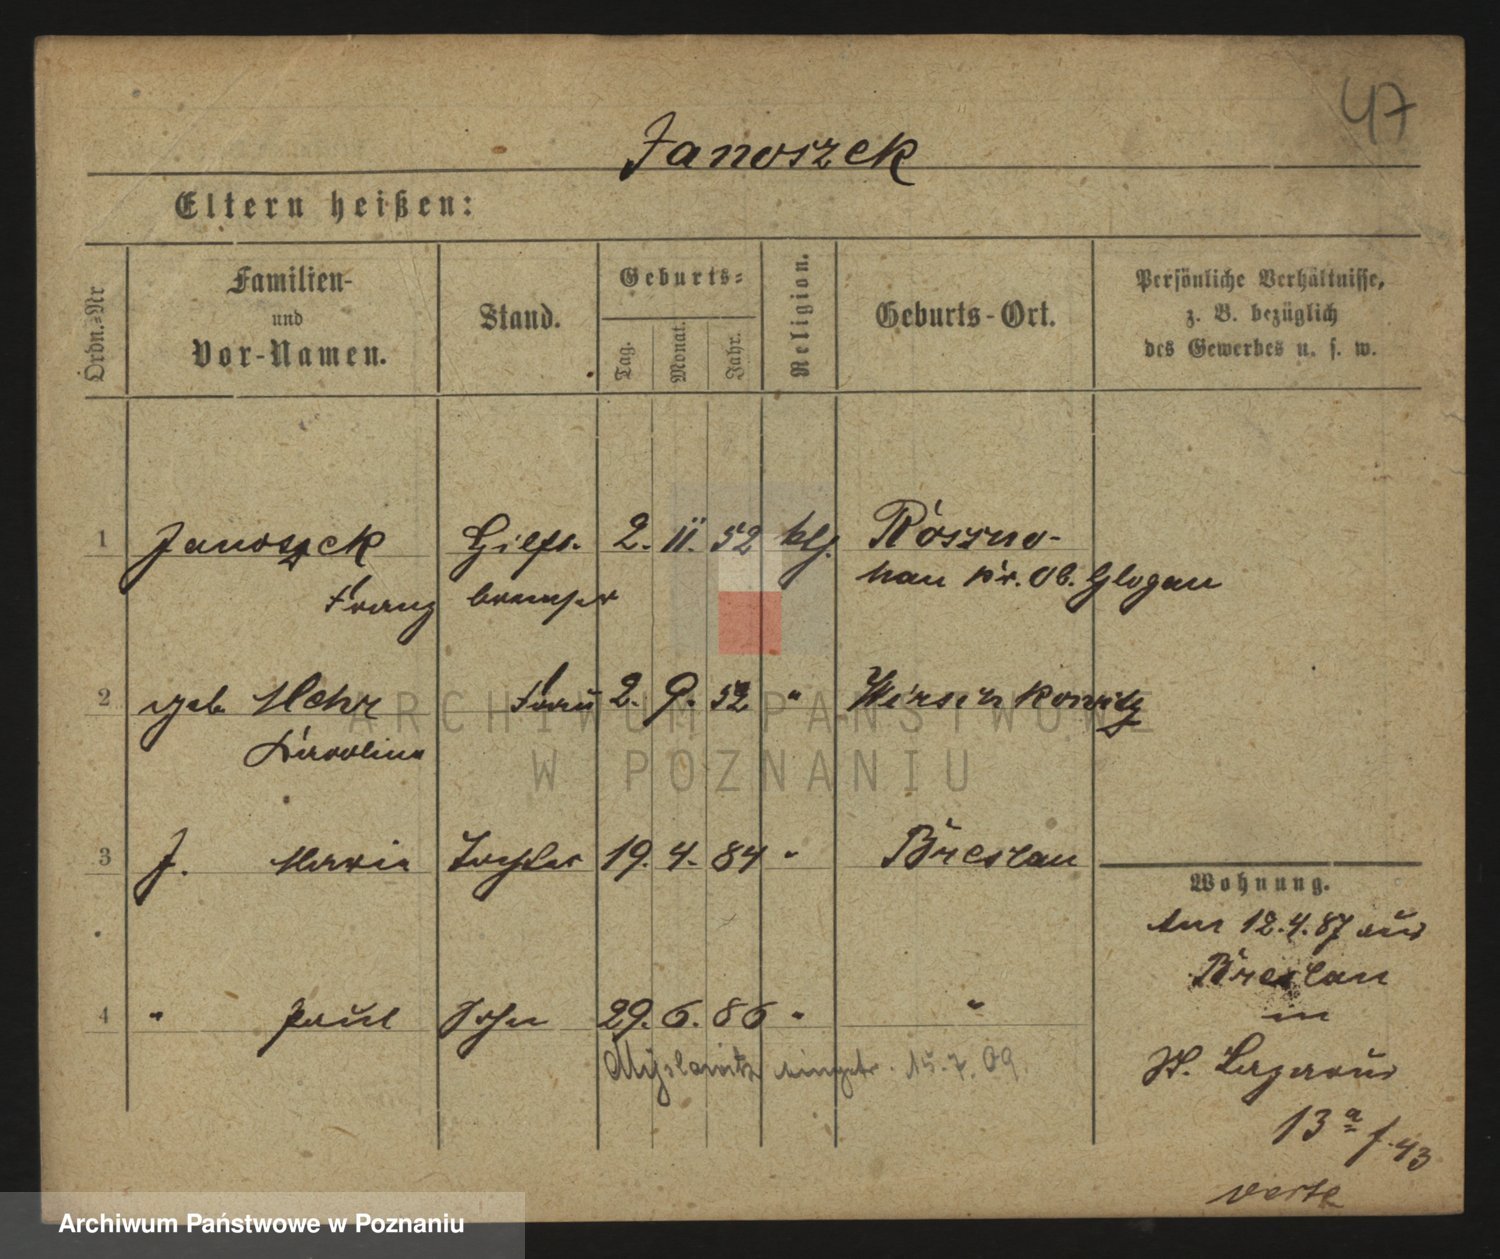 47
Janoszek
Eltern heißen:
Ordn.=Nr
Familien-
und
Vor-Namen.
Stand.
Geburts=
Tag.
Monat.
Jahr.
Religion.
Geburts-Ort.
Persönliche Verhältnisse,
z. B. bezüglich
des Gewerbes u. s. w.
1 Janoszek Hilfs- 2. 11. 52 klj. Rossno-
Franz bremser hau Kr. Ob. Glogau
2 geb. Mehr Frau 2. 9. 52 " Wirschkowitz
Karoline
3 J. Marie Tochter 19. 4. 84 " Breslau
Wohnung.
Am 12.4.87 aus
Breslau
4 " Paul Sohn 29. 6. 86 " "
in
Myslowitz eingetr. 15.7.09.
St. Lazarus
13a f. 43
verte
ARCHIWUM PAŃSTWOWE
W POZNANIU
Archiwum Państwowe w Poznaniu